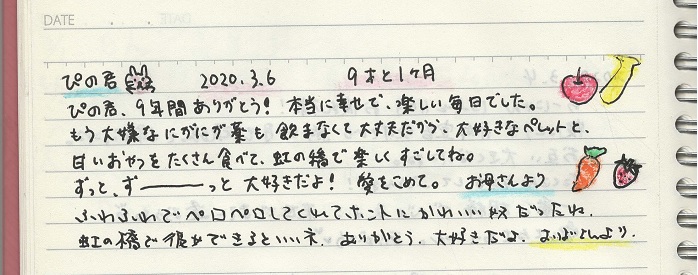 DATE . .
ぴの君 2020.3.6 9才と1ヶ月
ぴの君、9年間ありがとう！ 本当に幸せで、楽しい毎日でした。
もう大嫌なにがにが薬も飲まなくて大丈夫だから、大好きなペレットと、
甘いおやつをたくさん食べて、虹の橋で楽しくすごしてね。
ずっと、ず――っと 大好きだよ！ 愛をこめて。 お母さんより
ふわふわでペロペロしてくれてホントにかわいい奴だったね、
虹の橋で彼女できるといいネ、ありがとう、大好きだよ、より